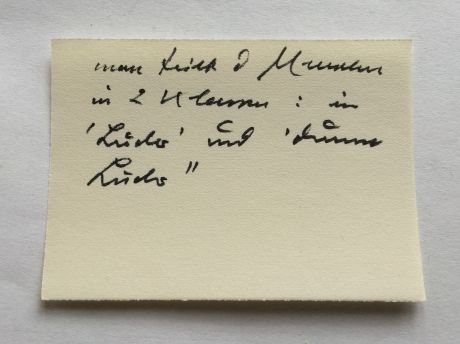 man teilt d Menschen
in 2 Klassen : in
'Luder' und 'dumme
Luder"